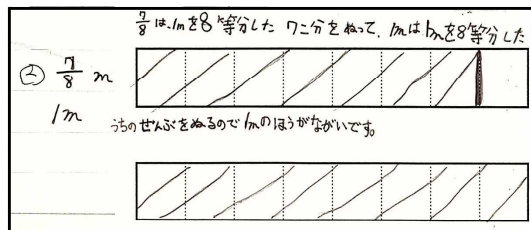 7/8は、1mを8等分した 7こ分をぬって、1mは1mを8等分した
② 7/8 m
1m
うちのぜんぶをぬるので1mのほうがながいです。